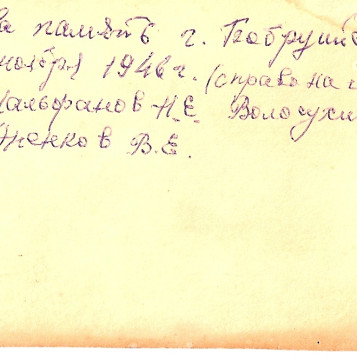 на память г. Бобруйс
ноября 1946 г. (справа на
Мальфанов Н.Е. Волосухи
В.Е.